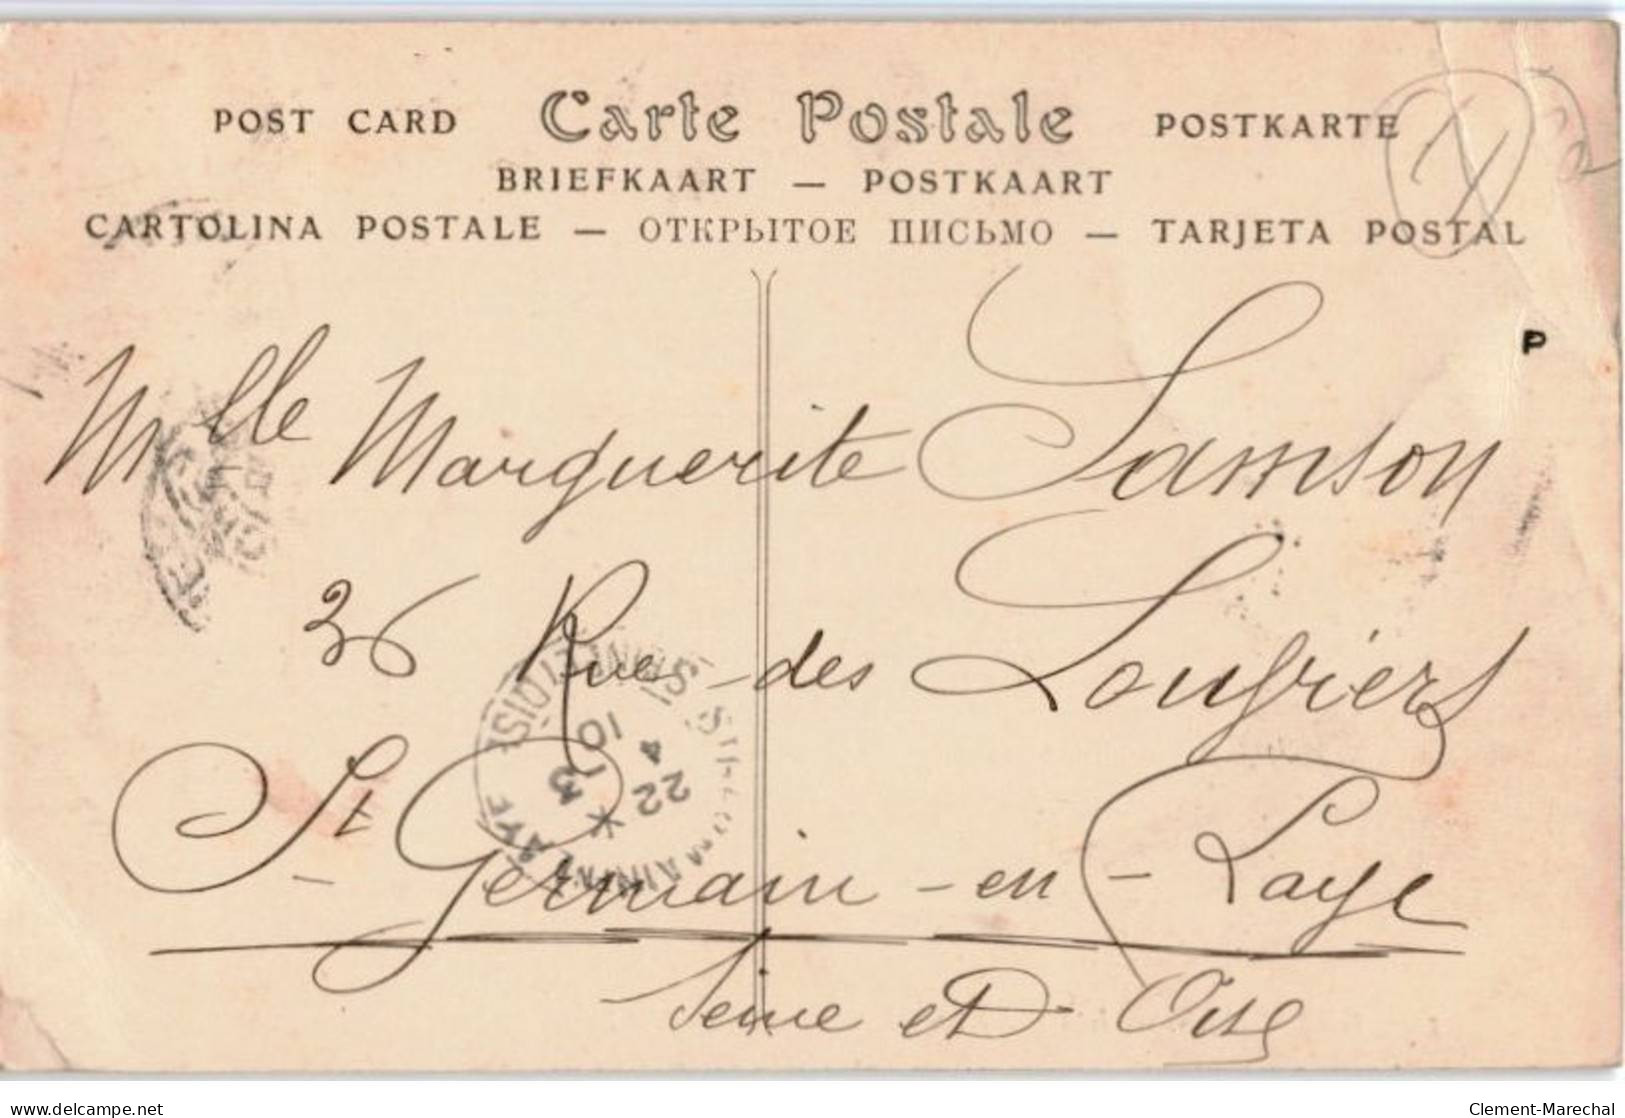 POST CARD Carte Postale POSTKARTE
BRIEFKAART — POSTKAART
CARTOLINA POSTALE — ОТКРЫТОЕ ПИСЬМО — TARJETA POSTAL
P
Mlle Marguerite Samson
36 Rue des
St Germain-en-Laye
Seine et Oise
22 4 10
3
*
LAYE
S.ET-OISE
delcampe.net
Clement-Marechal